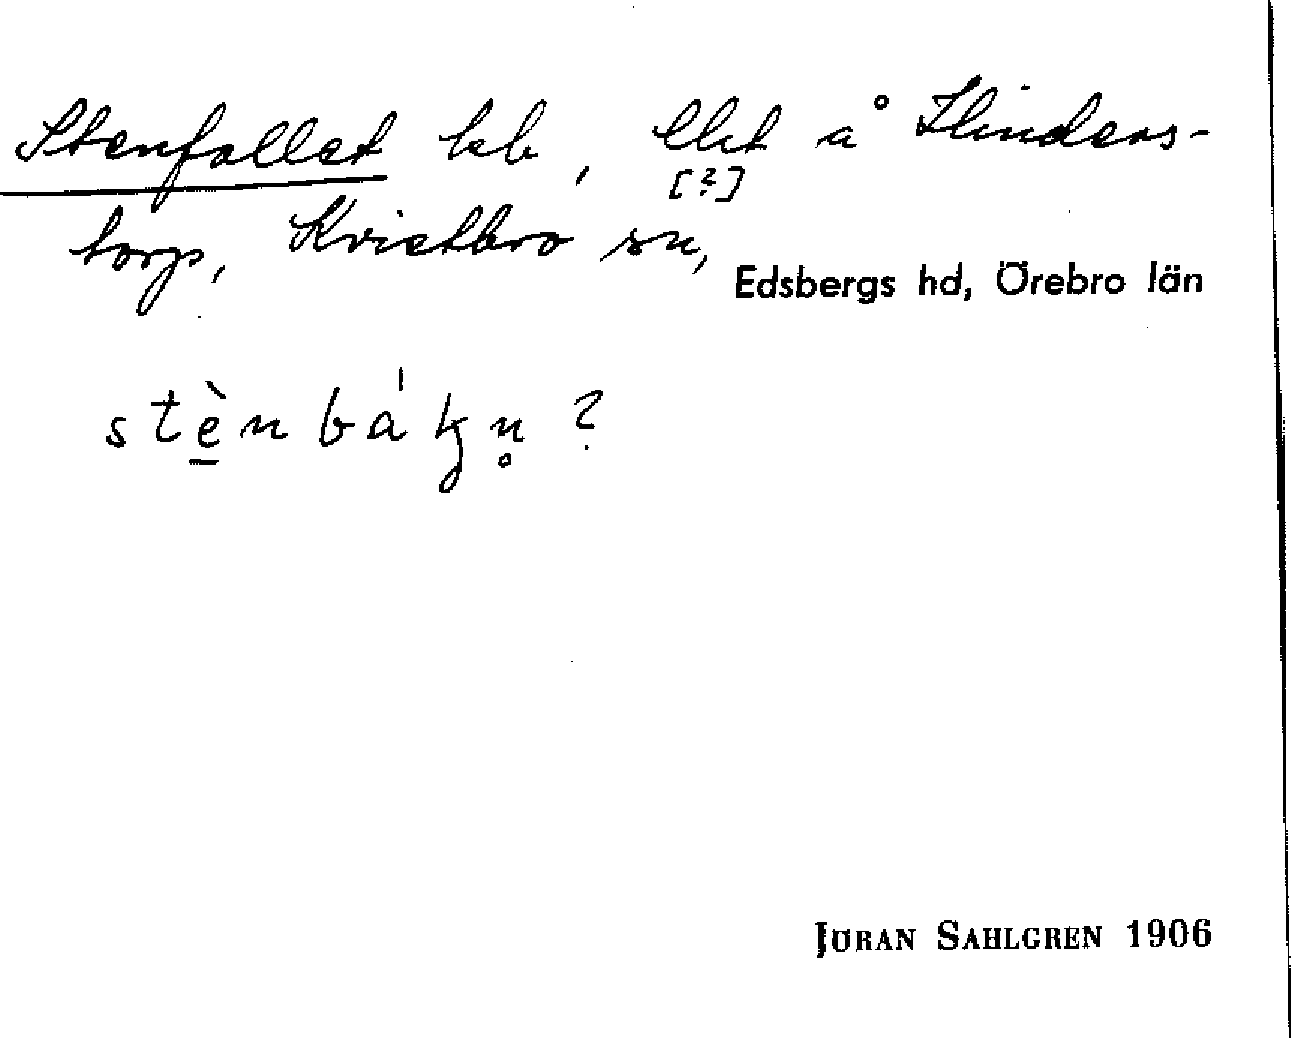 Stenfallet lsb, llet å Hinders-
[?]
torp, Kvistbro sn,
Edsbergs hd, Örebro län
stènbákn̥ ?
JÖRAN SAHLGREN 1906